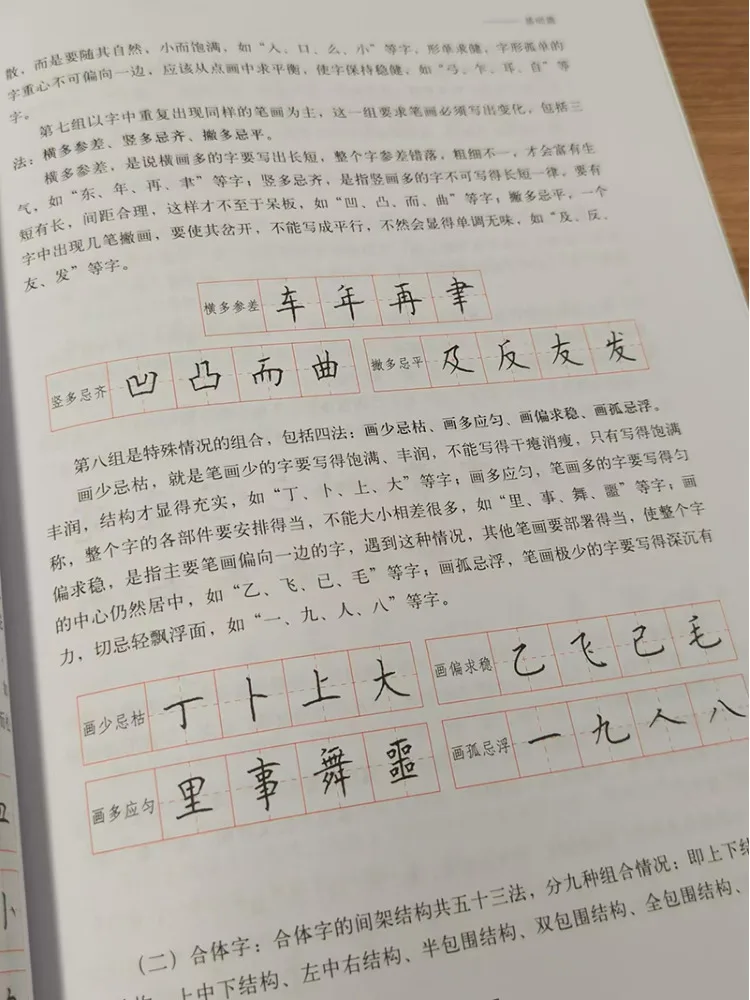 散，而是要随其自然，小而饱满，如“人、口、么、小”等字，形单求健，字形孤单的
字重心不可偏向一边，应该从点画中求平衡，使字保持稳健，如“弓、乍、耳、自”等
字。
第七组以字中重复出现同样的笔画为主，这一组要求笔画必须写出变化，包括三
法：横多参差、竖多忌齐、撇多忌平。
横多参差，是说横画多的字要写出长短，整个字参差错落，粗细不一，才会富有生
气，如“东、年、再、聿”等字；竖多忌齐，是指竖画多的字不可写得长短一律，要有
短有长，间距合理，这样才不至于呆板，如“凹、凸、而、曲”等字；撇多忌平，一个
字中出现几笔撇画，要使其岔开，不能写成平行，不然会显得单调无味，如“及、反、
友、发”等字。
横多参差 车 年 再 聿
竖多忌齐 凹 凸 而 曲 撇多忌平 及 反 友 发
第八组是特殊情况的组合，包括四法：画少忌枯、画多应匀、画偏求稳、画孤忌浮。
画少忌枯，就是笔画少的字要写得饱满、丰润，不能写得干瘪消瘦，只有写得饱满
丰润，结构才显得充实，如“丁、卜、上、大”等字；画多应匀，笔画多的字要写得匀
称，整个字的各部件要安排得当，不能大小相差很多，如“里、事、舞、噩”等字；画
偏求稳，是指主要笔画偏向一边的字，遇到这种情况，其他笔画要部署得当，使整个字
的中心仍然居中，如“乙、飞、已、毛”等字；画孤忌浮，笔画极少的字要写得深沉有
力，切忌轻飘浮面，如“一、九、人、八”等字。
画少忌枯 丁 卜 上 大 画偏求稳 乙 飞 已 毛
画多应匀 里 事 舞 噩 画孤忌浮 一 九 人 八
（二）合体字：合体字的间架结构共五十三法，分九种组合情况：即上下结
构、上中下结构、左中右结构、半包围结构、双包围结构、全包围结构、